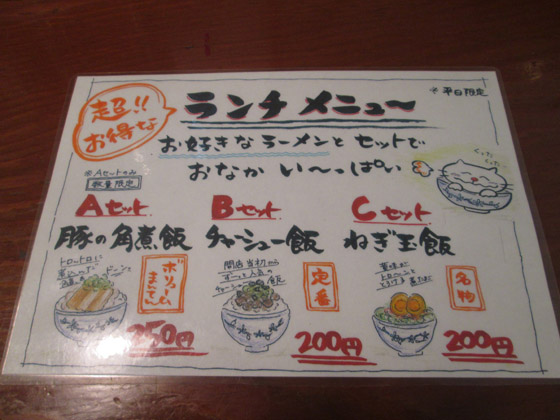 超!!
お得な
ランチメニュー
※平日限定
お好きなラーメンとセットで
おなかい〜っぱい
※Aセットのみ
数量限定
Aセット
豚の角煮飯
トロットロに
ドーンと
ボリューム
まんてん
250円
Bセット
チャーシュー飯
開店当初から
ずーっと人気の
チャーシュー飯
定番
200円
Cセット
ねぎ玉飯
黄味が
トローンと
とろける
名物
200円